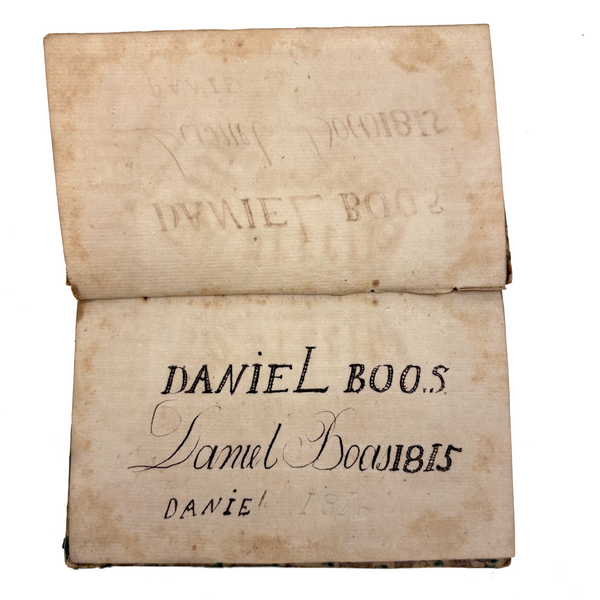 DANiEL BOO.S
Daniel Boas 1815
DANiEl